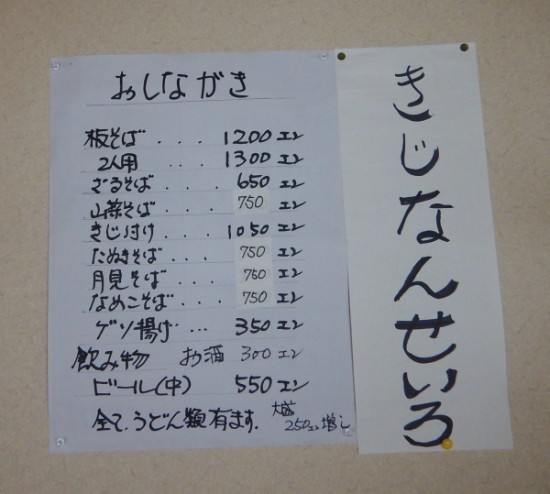 おしながき
板そば . . . 1200エン
2人用 . . . 1300エン
ざるそば . . . . 650エン
山菜そば . . . . 750エン
きじ付け . . . 1050エン
たぬきそば . . . 750エン
月見そば . . . . 750エン
なめこそば . . . 750エン
ゲソ揚げ ... 350エン
飲み物 お酒 300エン
ビール(中) 550エン
全て、うどん類有ます. 大盛
250エン増し
きじなんせいろ